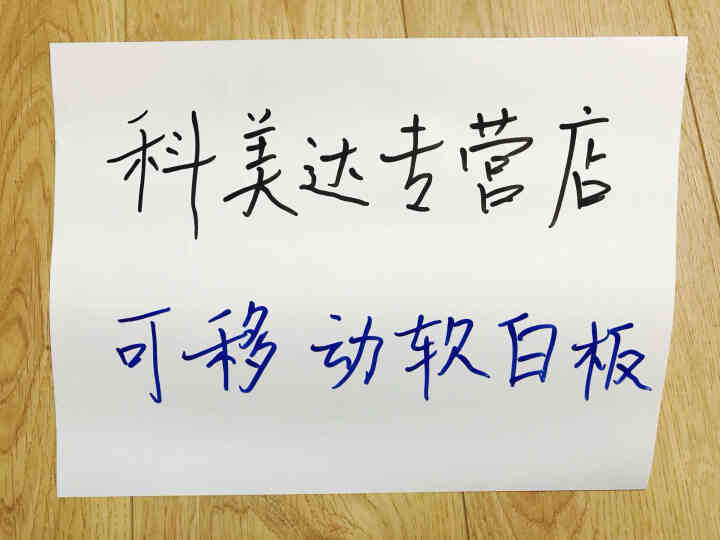 科美达专营店
可移动软白板